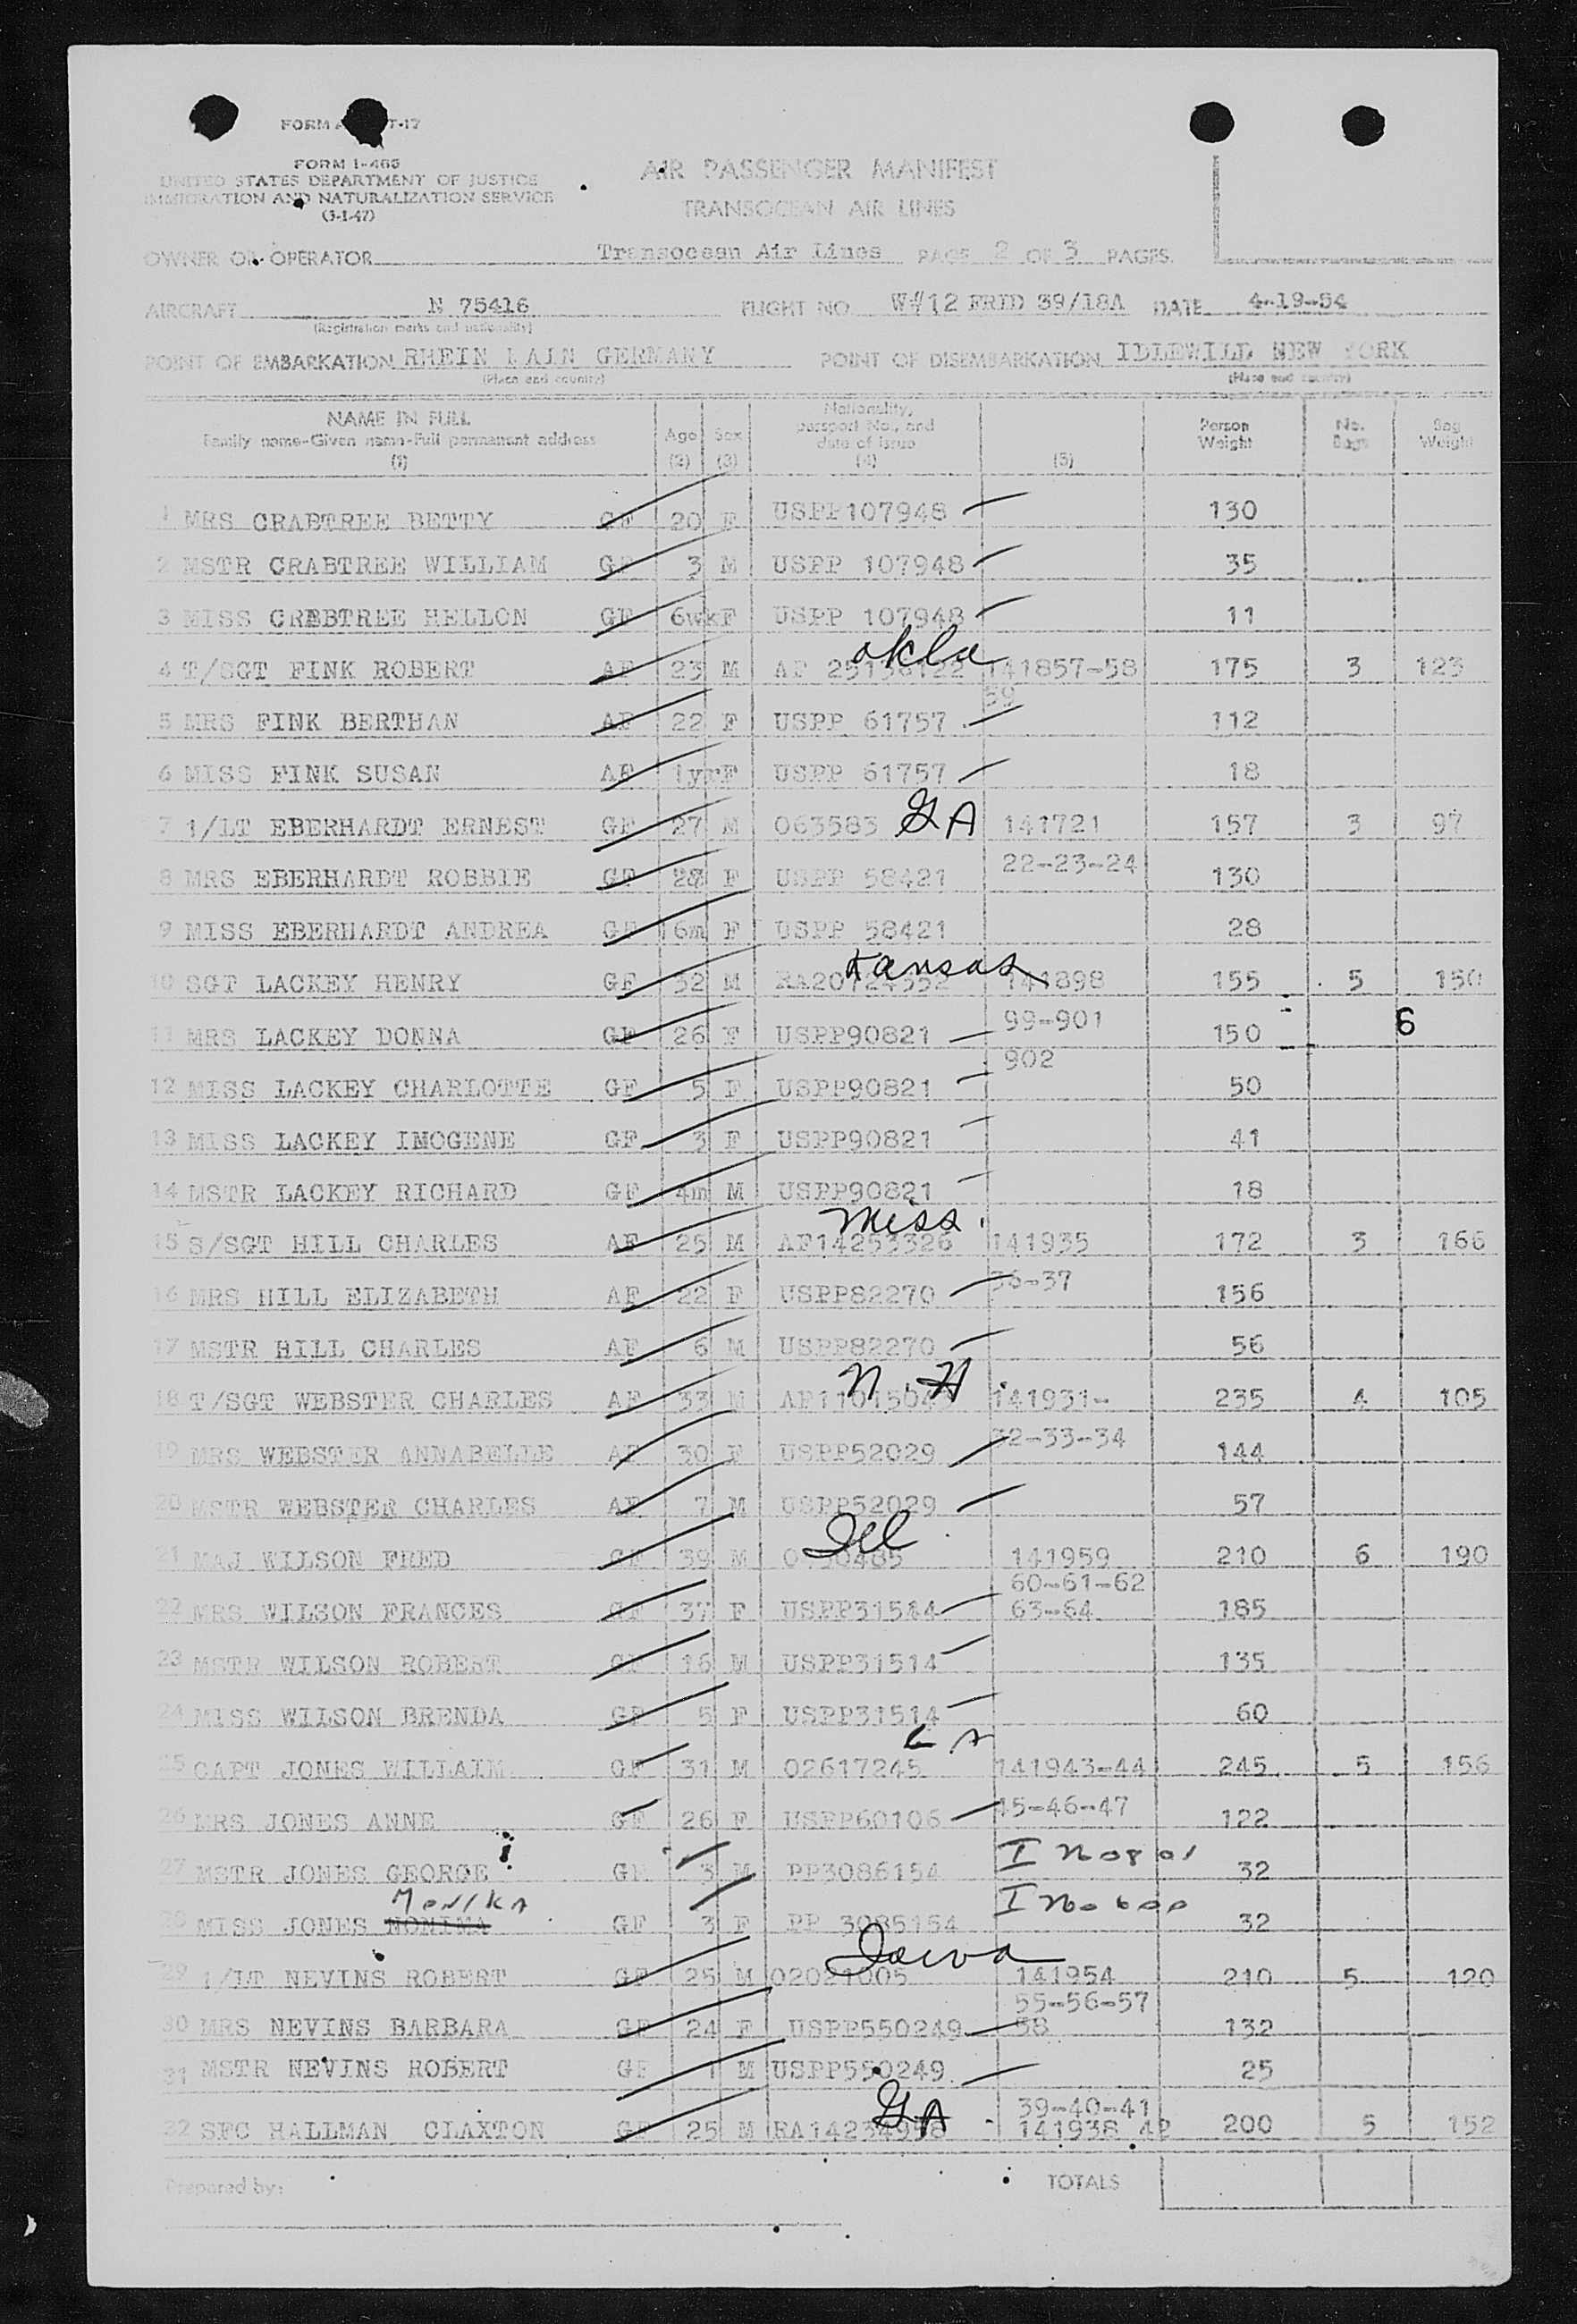 FORM I-465
UNITED STATES DEPARTMENT OF JUSTICE
IMMIGRATION AND NATURALIZATION SERVICE
(3-1-47)
AIR PASSENGER MANIFEST
TRANSOCEAN AIR LINES
OWNER OR OPERATOR Transocean Air Lines PAGE 2 OF 3 PAGES.
AIRCRAFT N 75416 FLIGHT NO. W#12 FRID 39/18A DATE 4-19-54
(Registration marks and nationality)
POINT OF EMBARKATION RHEIN MAIN GERMANY POINT OF DISEMBARKATION IDLEWILD NEW YORK
(Place and country) (Place and country)
NAME IN FULL Family name-Given name-Full permanent address (1) Age (2) Sex (3) Nationality, passport No., and date of issue (4) (5) Person Weight No. Bags Bag Weight
1 MRS CRABTREE BETTY GF 20 F USPP107948 130
2 MSTR CRABTREE WILLIAM GF 3 M USPP 107948 35
3 MISS CRABTREE HELLON GF 6wk F USPP 107948 11
Okla
4 T/SGT FINK ROBERT AF 23 M AF 141857-58 175 3 123
59
5 MRS FINK BERTHAN AF 22 F USPP 61757 112
6 MISS FINK SUSAN AF 1yr F USPP 61757 18
7 1/LT EBERHARDT ERNEST GF 27 M 063583 GA 141721 157 3 97
22-23-24
8 MRS EBERHARDT ROBBIE GF F USPP 58421 130
9 MISS EBERHARDT ANDREA GF 6m F USPP 58421 28
Kansas
10 SGT LACKEY HENRY GF 32 M 141898 155 5 150
99-901 6
11 MRS LACKEY DONNA GF 26 F USPP90821 150
902
12 MISS LACKEY CHARLOTTE GF 5 F USPP90821 50
13 MISS LACKEY IMOGENE GF 3 F USPP90821 41
14 MSTR LACKEY RICHARD GF 4m M USPP90821 18
Miss.
15 S/SGT HILL CHARLES AF 25 M AF14253326 141935 172 3 166
36-37
16 MRS HILL ELIZABETH AF 22 F USPP82270 156
17 MSTR HILL CHARLES AF 6 M USPP82270 56
N.H.
18 T/SGT WEBSTER CHARLES AF 33 M 141931- 235 4 105
32-33-34
19 MRS WEBSTER ANNABELLE AF 30 F USPP52029 144
20 MSTR WEBSTER CHARLES AF 7 M USPP52029 57
Ill
21 MAJ WILSON FRED GF 39 M 141959 210 6 190
60-61-62
22 MRS WILSON FRANCES GF 37 F USPP31514 63-64 185
23 MSTR WILSON ROBERT GF 16 M USPP31514 135
24 MISS WILSON BRENDA GF 5 F USPP31514 60
25 CAPT JONES WILLAIM GF 31 M 02617245 141943-44 245 5 156
45-46-47
26 MRS JONES ANNE GF 26 F USPP60106 122
27 MSTR JONES GEORGE GF 3 M PP3086154 32
MONIKA
28 MISS JONES GF 3 F PP 3085154 32
Iowa
29 1/LT NEVINS ROBERT GF 25 M 02021005 141954 210 5 120
55-56-57
30 MRS NEVINS BARBARA GF 24 F USPP550249 58 132
31 MSTR NEVINS ROBERT GF 1 M USPP550249 25
GA 39-40-41
32 SFC HALLMAN CLAXTON GF 25 M 141938 42 200 5 152
Prepared by: TOTALS